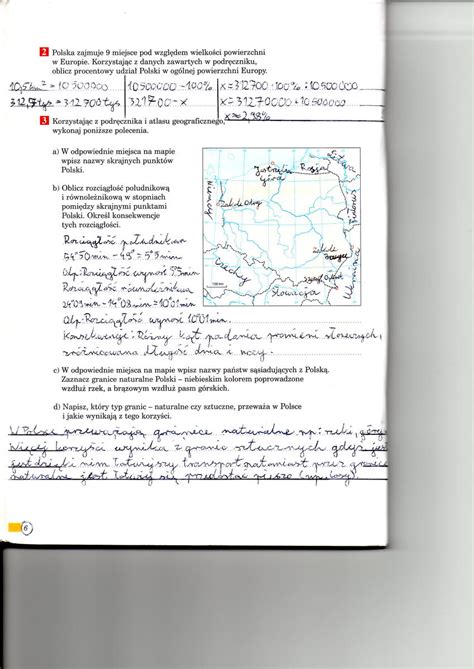 2 Polska zajmuje 9 miejsce pod względem wielkości powierzchni
w Europie. Korzystając z danych zawartych w podręczniku,
oblicz procentowy udział Polski w ogólnej powierzchni Europy.
10,5 km² = 10 500000 10500000 - 100% x=312700·100% : 10500000
312,7tys = 312 700 tys 321700 - x x= 31270000 : 10500000
x≈2,98%
3 Korzystając z podręcznika i atlasu geograficznego,
wykonaj poniższe polecenia.
a) W odpowiednie miejsca na mapie
wpisz nazwy skrajnych punktów
Polski.
b) Oblicz rozciągłość południkową
i równoleżnikową w stopniach
pomiędzy skrajnymi punktami
Polski. Określ konsekwencje
tych rozciągłości.
Rozciągłość południkowa
54°50min - 49° = 5°5min
Odp: Rozciągłość wynosi 5,5min
Rozciągłość równoleżnikowa
24°09min - 14°08min = 10°01min
Odp: Rozciągłość wynosi 10°01min.
Konsekwencje: Różny kąt padania promieni słonecznych,
zróżnicowana długość dnia i nocy.
Jastrzębia Góra
Rosja
Litwa
Białoruś
Niemcy
Czechy
Słowacja
Ukraina
100 km
c) W odpowiednie miejsca na mapie wpisz nazwy państw sąsiadujących z Polską.
Zaznacz granice naturalne Polski – niebieskim kolorem poprowadzone
wzdłuż rzek, a brązowym wzdłuż pasm górskich.
d) Napisz, który typ granic – naturalne czy sztuczne, przeważa w Polsce
i jakie wynikają z tego korzyści.
W Polsce przeważają granice naturalne np: rzeki, góry
Więcej korzyści wynika z granic sztucznych gdyż jest
jest dzięki nim łatwiejszy transport natomiast przez granice
naturalne jest łatwiej się przedostać pieszo (np. lasy).
6